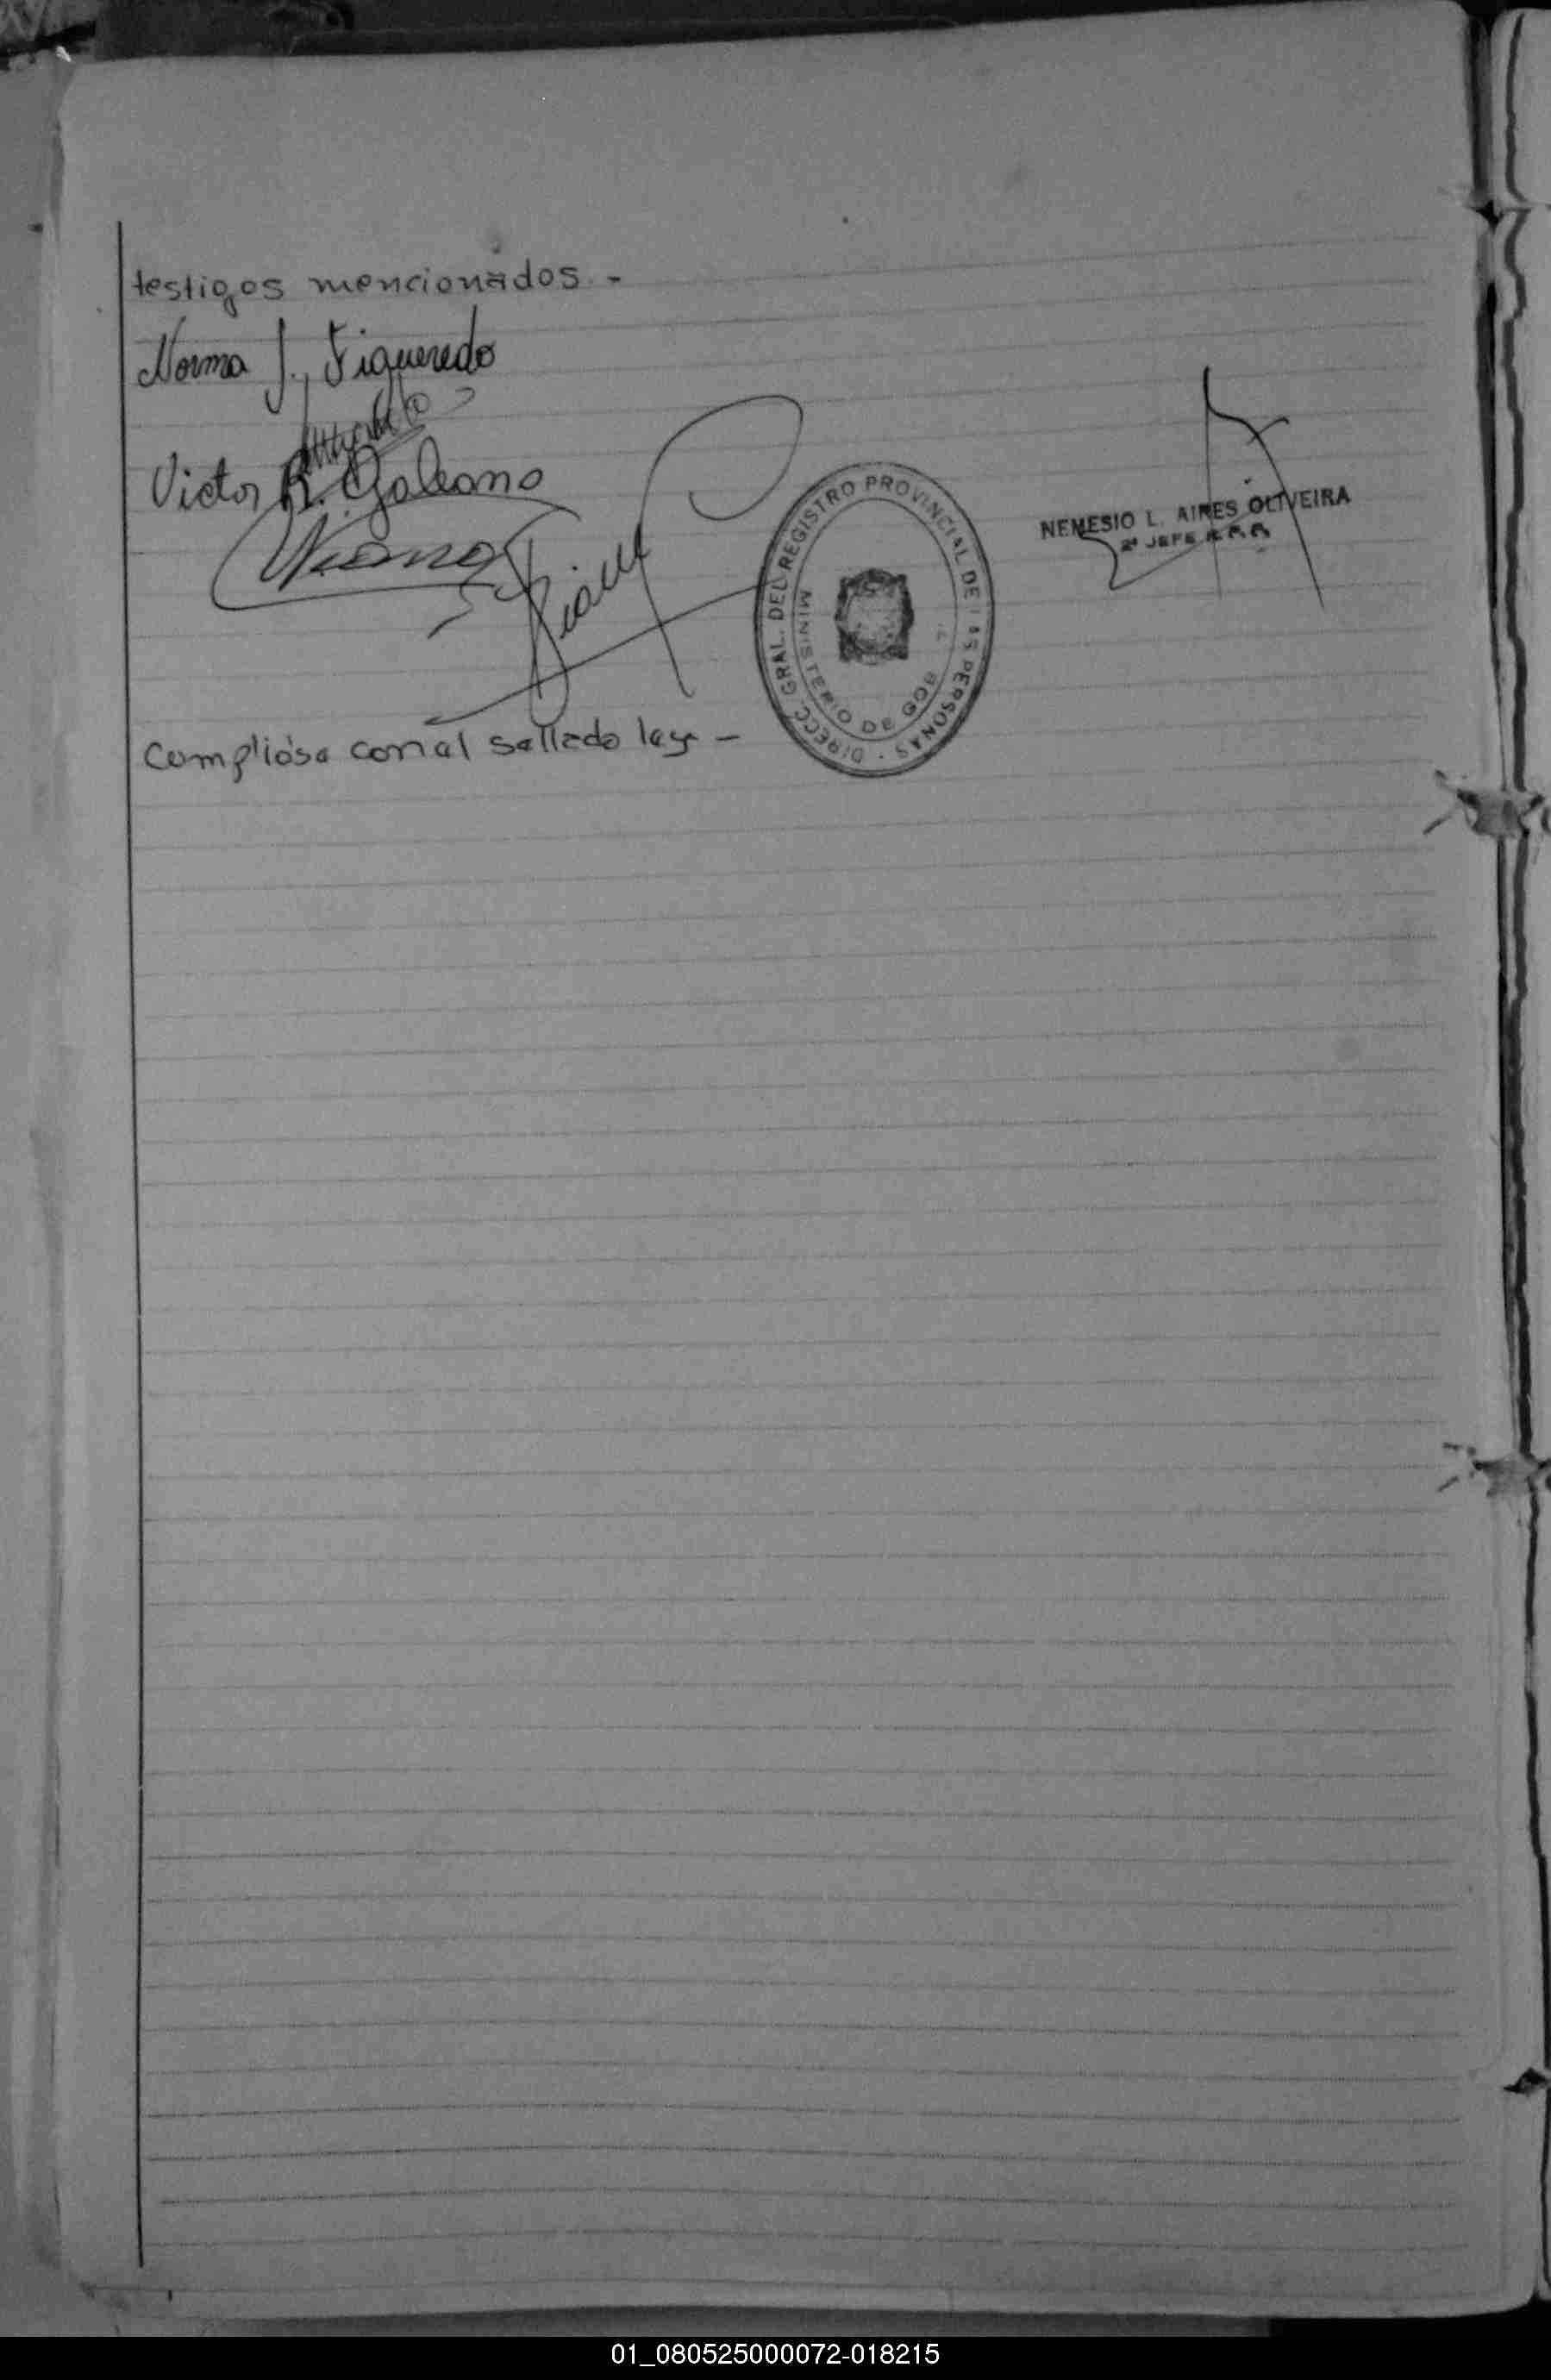 testigos mencionados.-
Norma J. Figueredo
Victor R. Galeano
DIRECC. GRAL. DEL REGISTRO PROVINCIAL DE LAS PERSONAS
MINISTERIO DE GOB
NEMESIO L. AIRES OLIVEIRA
2º JEFE
Complióse con el sellado ley -
01_080525000072-018215